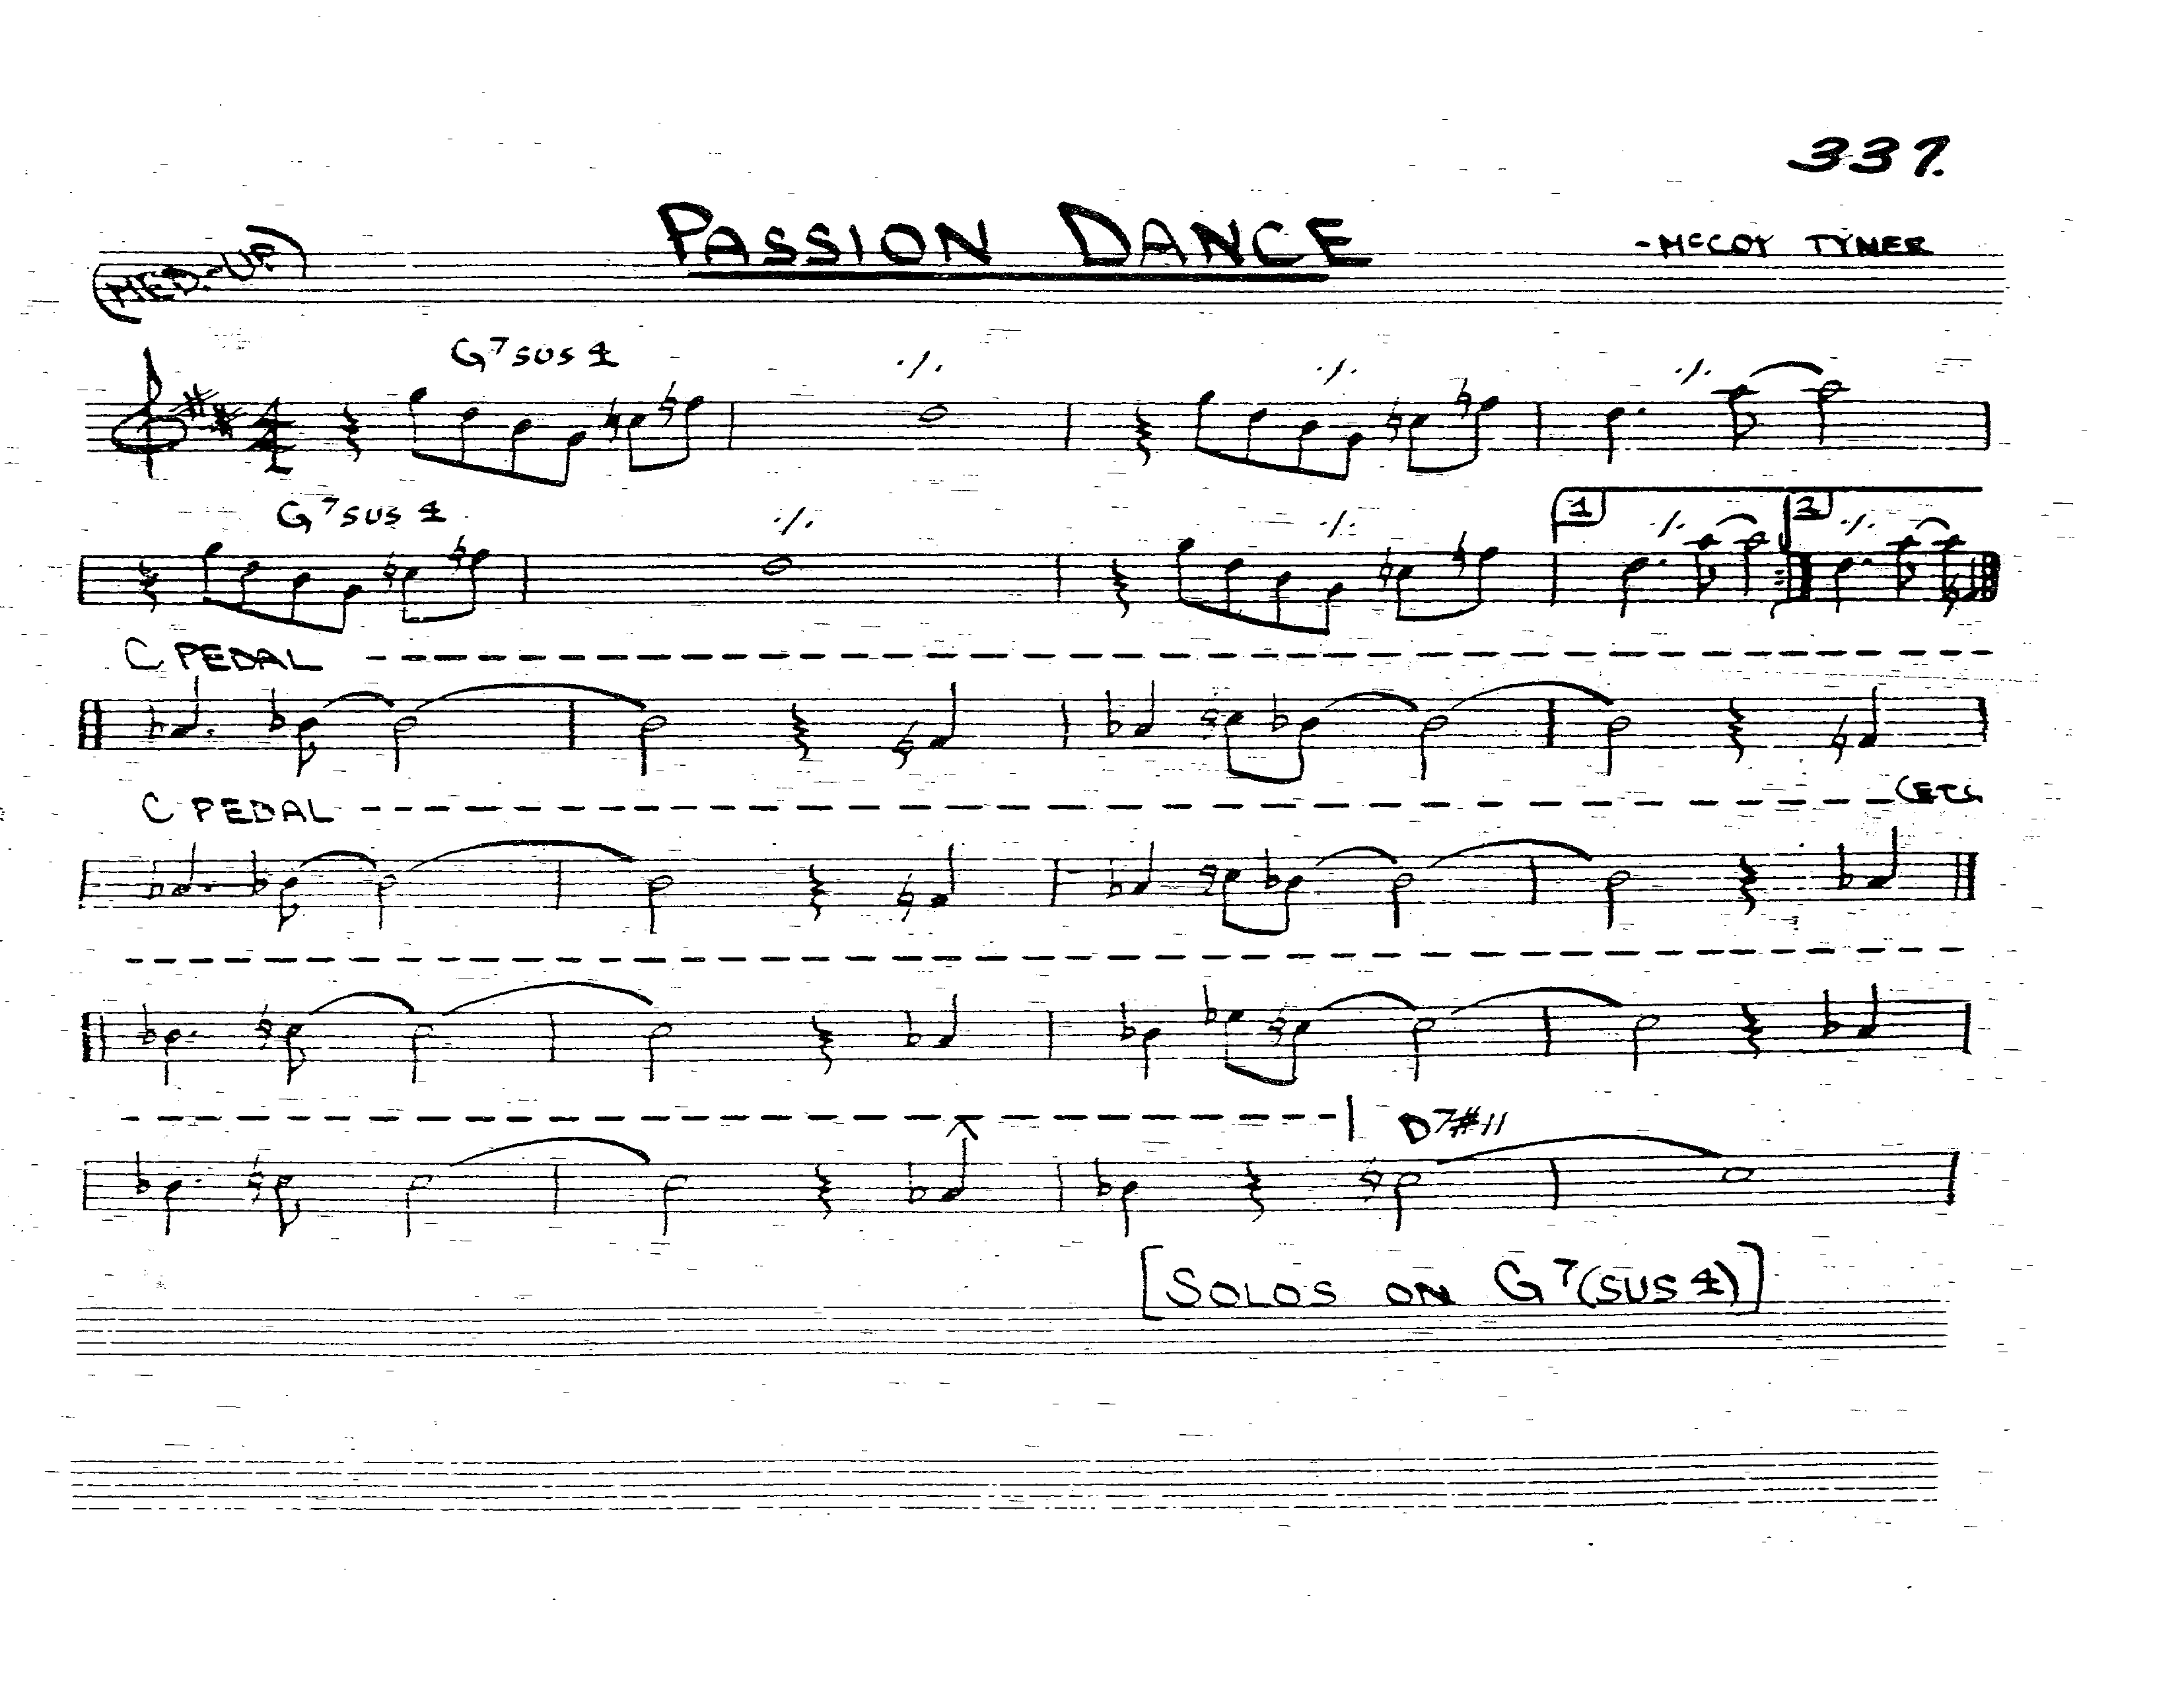 337.
PASSION DANCE
(MED.-UP)
-McCOY TYNER
G7sus4 ./. ./. ./.
G7sus4 ./. ./. 1 ./. 2 ./.
C PEDAL
C PEDAL (ETC.
D7#11
[SOLOS ON G7(SUS4)]